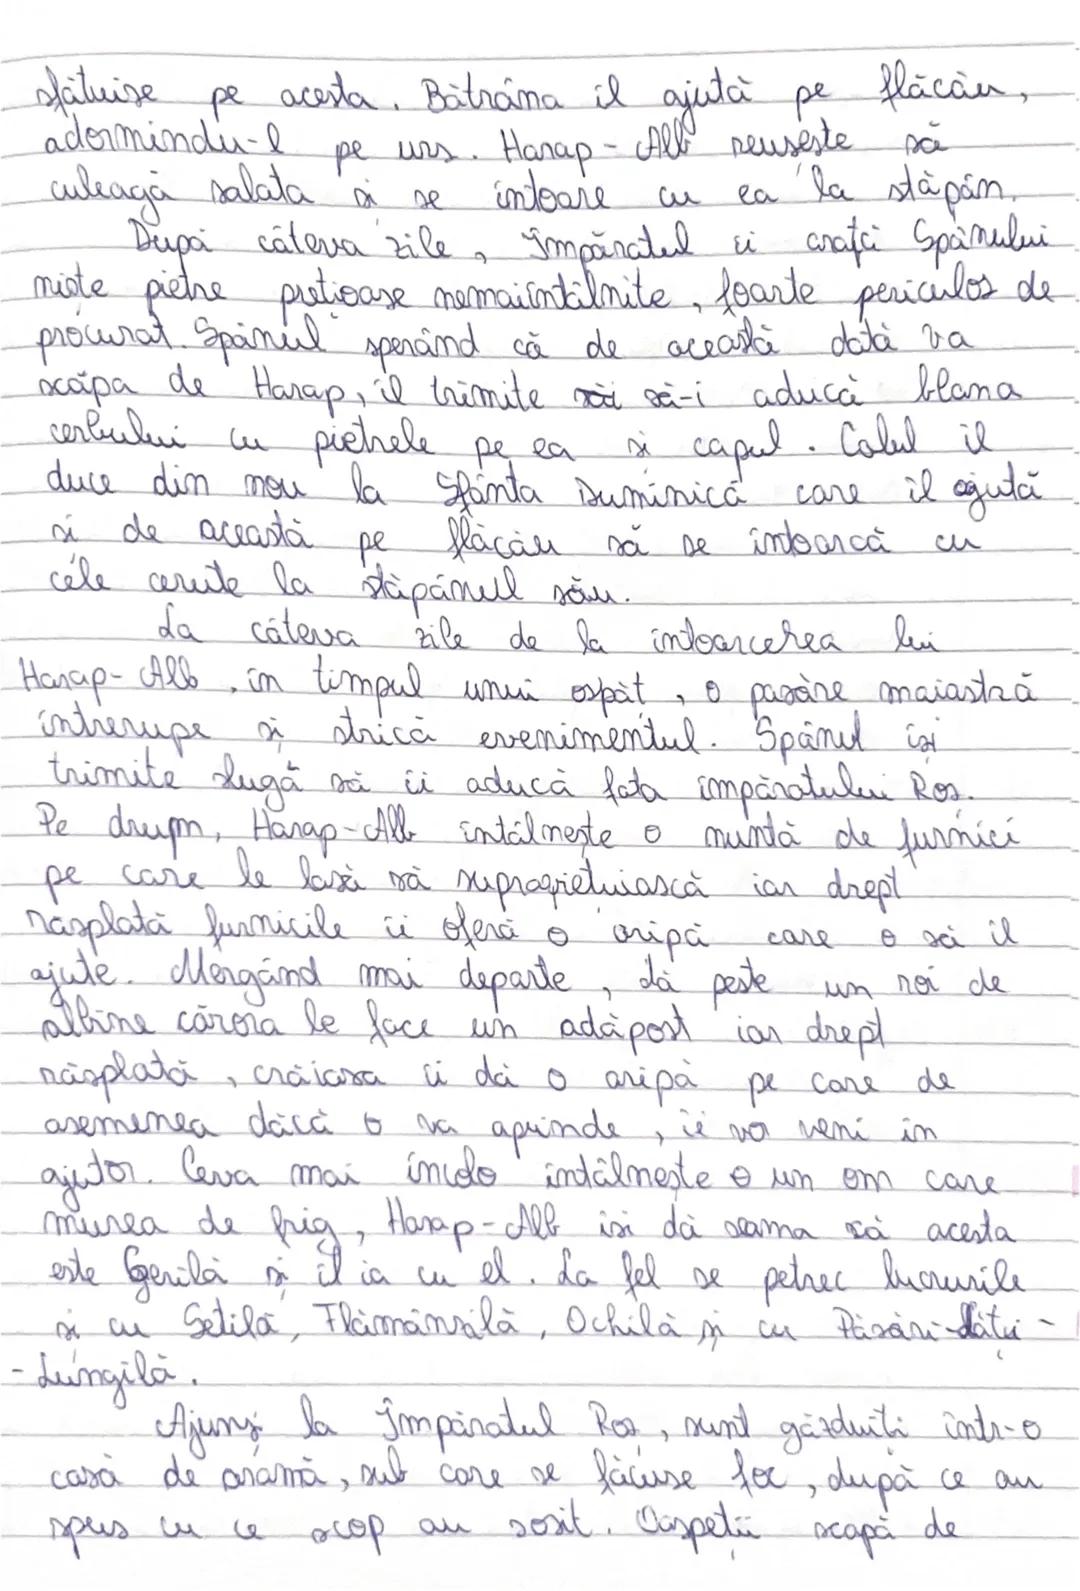 sfătuise pe acesta. Bătrâna îl ajută pe flăcău,
adormindu-l pe urs. Harap-Alb reușește să
culeagă salata și se întoare cu ea la stăpân.
După câteva zile, Împăratul îi arată Spânului
niște pietre prețioase nemaiîntâlnite, foarte periculos de
procurat. Spânul sperând că de această dată va
scăpa de Harap, îl trimite să-i aducă blana
cerbului cu pietrele pe ea și capul. Calul îl
duce din nou la Sfânta Duminică care îl ajută
și de această pe flăcău să se întoarcă cu
cele cerute la stăpânul său.
La câteva zile de la întoarcerea lui
Harap-Alb, în timpul unui ospăt, o pasăre maiastră
întrerupe și strică evenimentul. Spânul își
trimite slugă să îi aducă fata împăratului Roș.
Pe drum, Harap-Alb întâlnește o nuntă de furnici
pe care le lasă să supraviețuiască iar drept
răsplată furnicile îi oferă o aripă care o să îl
ajute. Mergând mai departe, dă peste un roi de
albine cărora le face un adăpost iar drept
răsplată, crăiasa îi dă o aripă pe care de
asemenea dacă o va aprinde, îi va veni în
ajutor. Ceva mai încolo întâlnește un om care
murea de frig, Harap-Alb își dă seama că acesta
este Gerilă și îl ia cu el. La fel se petrec lucrurile
și cu Setilă, Flămânzilă, Ochilă și cu Păsări-Lăți-
-Lungilă.
Ajunși la Împăratul Roș, sunt găzduiți într-o
casă de aramă, sub care se făcuse foc, după ce au
spus cu ce scop au sosit. Oaspeții scapă de